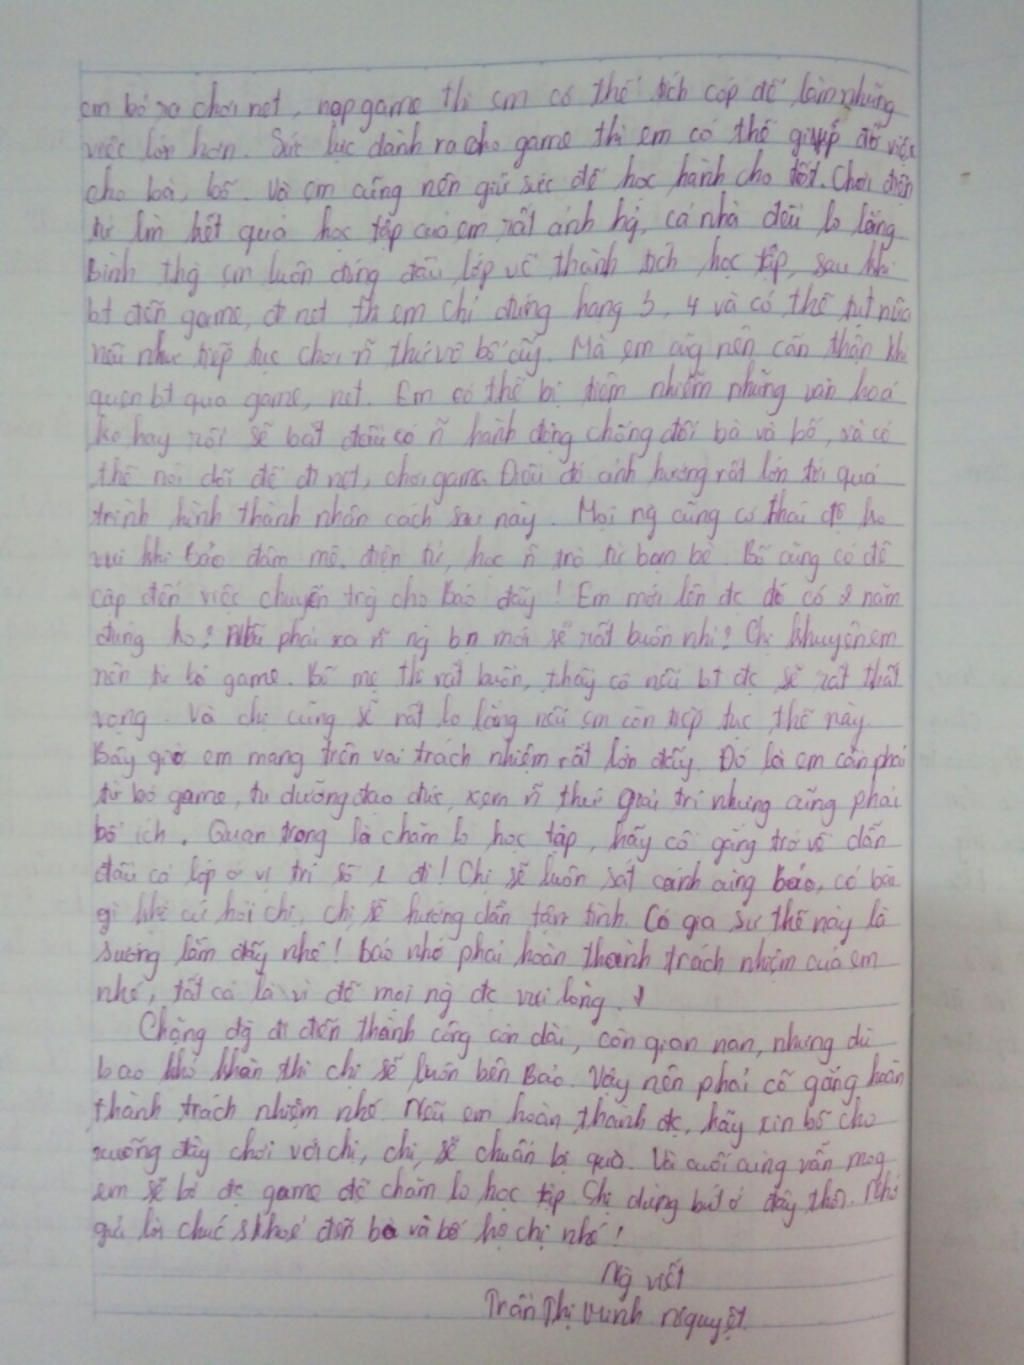 em bỏ ra chơi net, nạp game thì em có thể tích cóp để làm những
việc lớn hơn. Sức lực dành ra cho game thì em có thể giúp đỡ việc
cho bà, bố. Và em cũng nên giữ sức để học hành cho tốt. Chơi điện
tử làm kết quả học tập của em rất ảnh hg, cả nhà đều lo lắng.
Bình thg em luôn đứng đầu lớp về thành tích học tập, sau khi
bt đến game, đi net thì em chỉ đứng hạng 3, 4 và có thể tụt nữa
nếu như tiếp tục chơi n~ thứ vô bổ ấy. Mà em cũg nên cẩn thận khi
quen bt qua game, net. Em có thể bị tiêm nhiễm những văn hoá
ko hay rồi sẽ bắt đầu có n~ hành động chống đối bà và bố, và có
thể nói dối để đi net, chơi game. Điều đó ảnh hưởng rất lớn tới quá
trình hình thành nhân cách sau này. Mọi ng cũng có thái độ ko
vui khi Bảo đam mê điện tử, học n~ trò từ bạn bè. Bố cũng có đề
cập đến việc chuyển trg cho Bảo đấy! Em mới lên đc đó có 2 năm
đúng ko? Nếu phải xa n~ ng bạn mới sẽ rất buồn nhỉ? Chị khuyên em
nên từ bỏ game. Bố mẹ thì rất buồn, thầy cô nếu bt đc sẽ rất thất
vọng. Và chị cũng sẽ rất lo lắng nếu em còn tiếp tục thế này.
Bây giờ em mang trên vai trách nhiệm rất lớn đấy. Đó là em cần phải
từ bỏ game, tu dưỡng đạo đức, xem n~ thứ giải trí nhưng cũng phải
bổ ích. Quan trọng là chăm lo học tập, hãy cố gắng trở về dẫn
đầu cả lớp ở vị trí số 1 đi! Chị sẽ luôn sát cánh cùng Bảo, có bài
gì khó cứ hỏi chị, chị sẽ hướng dẫn tận tình. Có gia sư thế này là
sướng lắm đấy nhé! Bảo nhớ phải hoàn thành trách nhiệm của em
nhé, tất cả là vì để mọi ng đc vui lòng.
Chặng đg đi đến thành công còn dài, còn gian nan, nhưng dù
bao khó khăn thì chị sẽ luôn bên Bảo. Vậy nên phải cố gắng hoàn
thành trách nhiệm nhé. Nếu em hoàn thành đc, hãy xin bố cho
xuống đây chơi với chị, chị sẽ chuẩn bị quà. Và cuối cùng vẫn mog
em sẽ bỏ đc game để chăm lo học tập. Chị dừng bút ở đây thôi. Nhớ
gửi lời chúc skhoẻ đến bà và bố hộ chị nhé!
Ng viết
Trần Thị Minh Nguyệt.